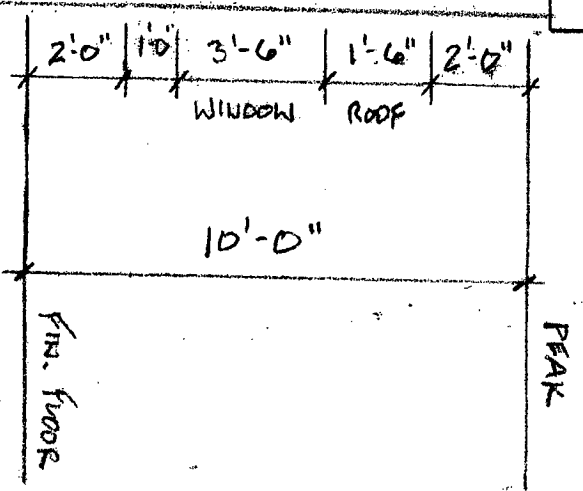 2'-0" 1'0" 3'-6" 1'-6" 2'-0"
WINDOW ROOF
10'-0"
FIN. FLOOR
PEAK